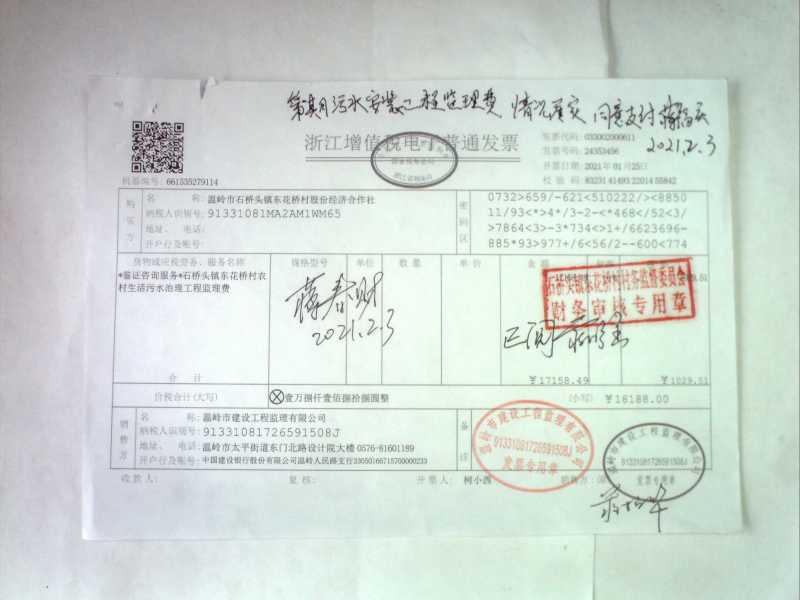 污水 工程监理费 情况属实 同意支付
2021.2.3
浙江增值税电子普通发票
机器编号: 661535279114
发票代码: 033002000611
发票号码: 24353456
开票日期: 2021年01月25日
校验码: 83231 41493 22014 55842
购买方
名称: 温岭市石桥头镇东花桥村股份经济合作社
纳税人识别号: 91331081MA2AM1WM65
地址、电话:
开户行及账号:
密码区
0732>659/-621<510222/><8850
11/93<*>4*/3-2-<*468</52<3/
>7864<3>-3*734<>1+/6623696-
885*93>977+/6<56/2--600<774
货物或应税劳务、服务名称 规格型号 单位 数量 单价 金额
*鉴证咨询服务*石桥头镇东花桥村农
村生活污水治理工程监理费
石桥头镇东花桥村村务监督委员会
财务审核专用章
蒋春财
2021.2.3
已阅
合计 ¥17158.49 ¥1029.51
价税合计(大写) 壹万捌仟壹佰捌拾捌圆整 (小写) ¥18188.00
销售方
名称: 温岭市建设工程监理有限公司
纳税人识别号: 91331081726591508J
地址、电话: 温岭市太平街道东门北路设计院大楼 0576-81601189
开户行及账号: 中国建设银行股份有限公司温岭人民路支行33050166715700000233
备注
温岭市建设工程监理有限公司
91331081726591508J
发票专用章
温岭市建设工程监理有限公司
91331081726591508J
发票专用章
收款人: 复核: 开票人: 柯小西 销售方: